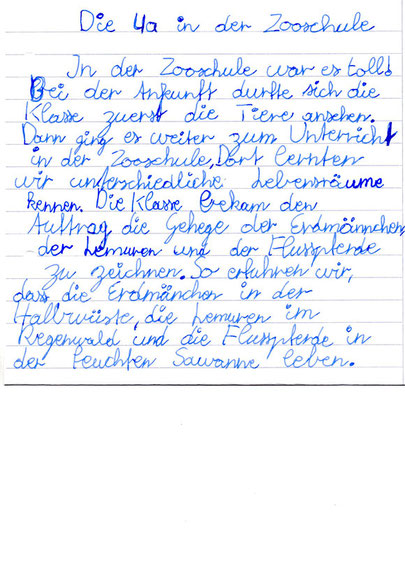 Die 4a in der Zooschule
In der Zooschule war es toll!
Bei der Ankunft durfte sich die
Klasse zuerst die Tiere ansehen.
Dann ging es weiter zum Unterricht
in der Zooschule. Dort lernten
wir unterschiedliche Lebensräume
kennen. Die Klasse bekam den
Auftrag, die Gehege der Erdmännchen,
der Lemuren und der Flusspferde
zu zeichnen. So erfuhren wir,
dass die Erdmänchen in der
Halbwüste, die Lemuren im
Regenwald und die Flusspferde in
der feuchten Savanne leben.